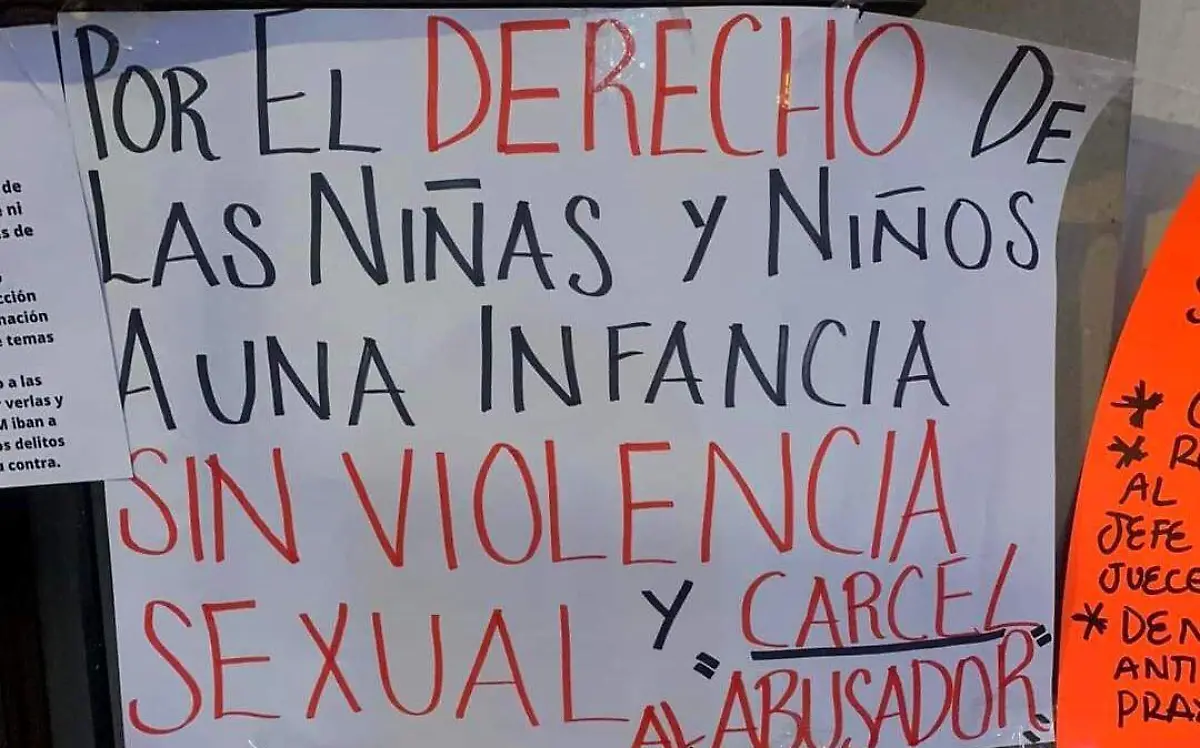 POR EL DERECHO DE
LAS NIÑAS Y NIÑOS
A UNA INFANCIA
SIN VIOLENCIA
SEXUAL Y CARCEL
"AL ABUSADOR"
de
ni
s de
cción
mación
temas
a las
verlas y
M iban a
os delitos
contra.
*
* R
AL
JEFE
JUECE
* DEN
ANTI
PRAX